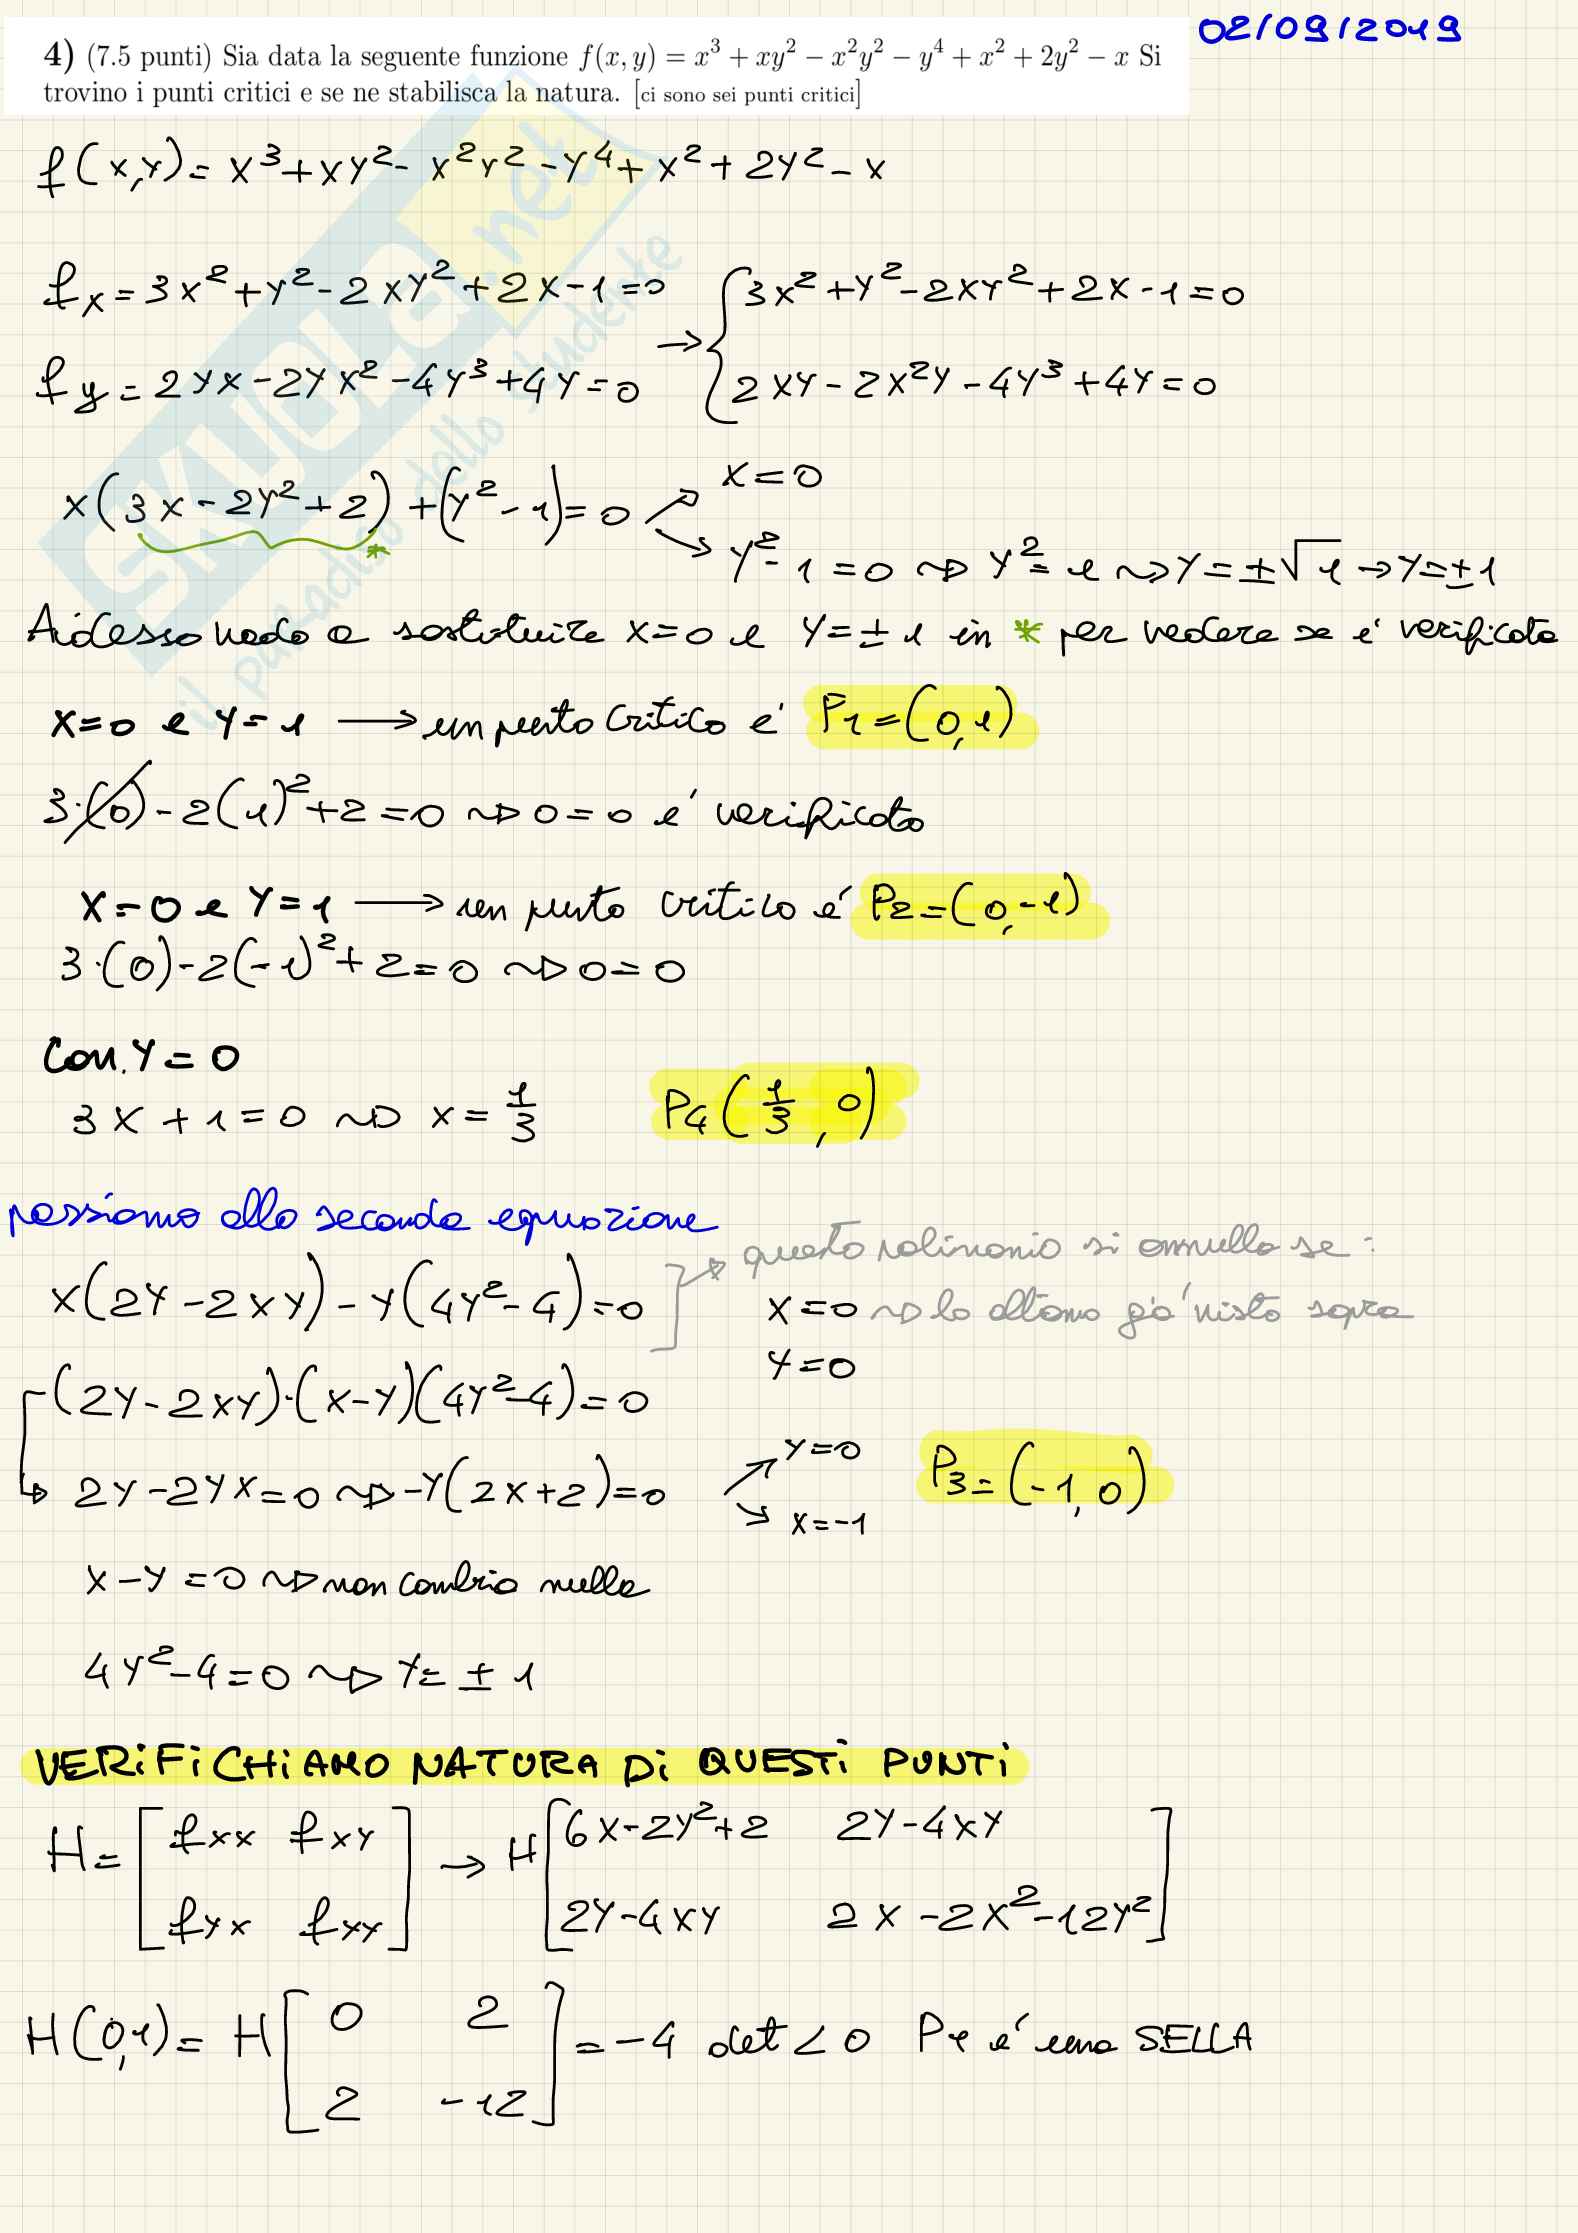 02/09/2019
4) (7.5 punti) Sia data la seguente funzione f(x, y) = x³ + xy² − x²y² − y⁴ + x² + 2y² − x Si
trovino i punti critici e se ne stabilisca la natura. [ci sono sei punti critici]
f(x,y) = x³ + xy² - x²y² - y⁴ + x² + 2y² - x
fx = 3x² + y² - 2xy² + 2x - 1 = 0 → { 3x² + y² - 2xy² + 2x - 1 = 0
fy = 2yx - 2yx² - 4y³ + 4y = 0 { 2xy - 2x²y - 4y³ + 4y = 0
x(3x - 2y² + 2) + (y² - 1) = 0 ↗ x = 0
* ↘ y² - 1 = 0 ⇝ y² = 1 ⇝ y = ±√1 → y = ±1
Adesso vado a sostituire x = 0 e y = ± 1 in * per vedere se é verificata
x = 0 e y = 1 → un punto critico é P1 = (0,1)
3·(0) - 2(1)² + 2 = 0 ⇝ 0 = 0 é verificata
x = 0 e y = 1 → un punto critico é P2 = (0,-1)
3·(0) - 2(-1)² + 2 = 0 ⇝ 0 = 0
Con. y = 0
3x + 1 = 0 ⇝ x = 1/3 P4 (1/3, 0)
passiamo alla seconda equazione
x(2y - 2xy) - y(4y² - 4) = 0 ] → questo polinomio si annulla se :
x = 0 ⇝ lo abbiamo giá visto sopra
y = 0
(2y - 2xy)·(x - y)(4y² - 4) = 0
↳ 2y - 2yx = 0 ⇝ -y(2x + 2) = 0 ↗ y = 0 P3 = (-1, 0)
↘ x = -1
x - y = 0 ⇝ non cambia nulla
4y² - 4 = 0 ⇝ y = ± 1
VERIFICHIAMO NATURA DI QUESTI PUNTI
H = [ fxx fxy → H [ 6x - 2y² + 2 2y - 4xy
fyx fyy ] 2y - 4xy 2x - 2x² - 12y² ]
H(0,1) = H [ 0 2
2 -12 ] = -4 det < 0 P1 é una SELLA
SKUOLA.net
il paradiso dello studente